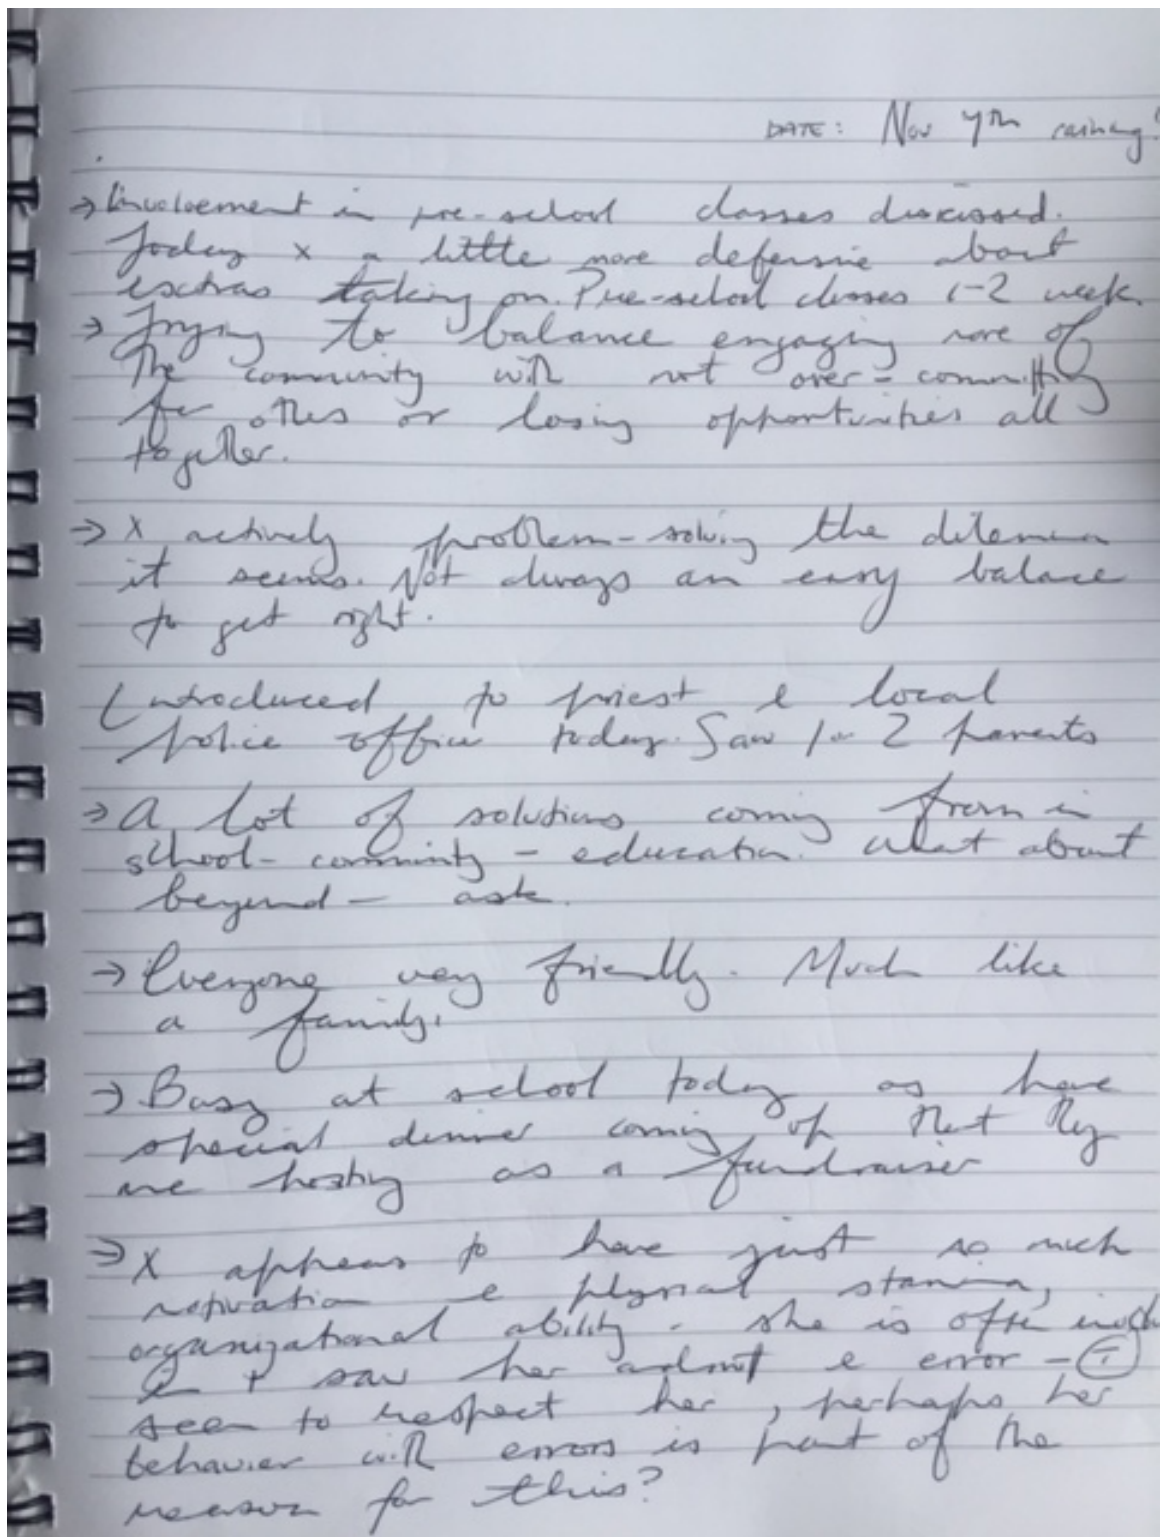 DATE: Nov 4th raining!
→ Involvement in pre-school classes discussed.
Today x a little more defensive about
extras taking on. Pre-school classes 1-2 week.
→ Trying to balance engaging more of
the community with not over-committing
for others or losing opportunities all
together.
→ X actively problem-solving the dilemma
it seems. Not always an easy balance
to get right.
Introduced to priest & local
police office today. Saw 1 or 2 parents
→ A lot of solutions coming from in
school - community - education. What about
beyond - ask.
→ Everyone very friendly. Much like
a family.
→ Busy at school today as have
special dinner coming up that they
are hosting as a fundraiser
→ X appears to have just so much
motivation & physical stamina,
organizational ability. She is often
& I saw her admit e error - T
seem to respect her, perhaps her
behavior with errors is part of the
reason for this?